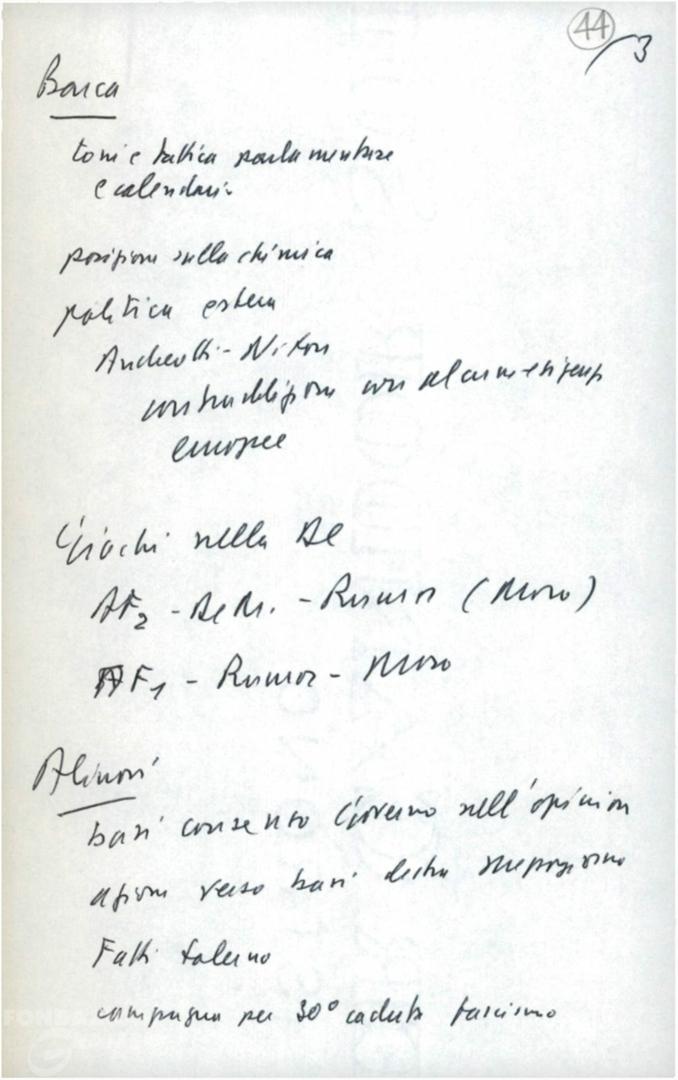 44
/3
Barca
toni e tattica parlamentare
e calendario
posizione sulla chimica
politica estera
Andreotti - Nixon
contraddizione con alcune esigenze
europee
Giochi nella DC
AF2 - De M. - Rumor (Moro)
AF1 - Rumor - Moro
Alinovi
basi consenso Governo nell'opinione
azione verso basi destra mezzogiorno
Fatti Salerno
campagna per 30° caduta fascismo
FONDA
G